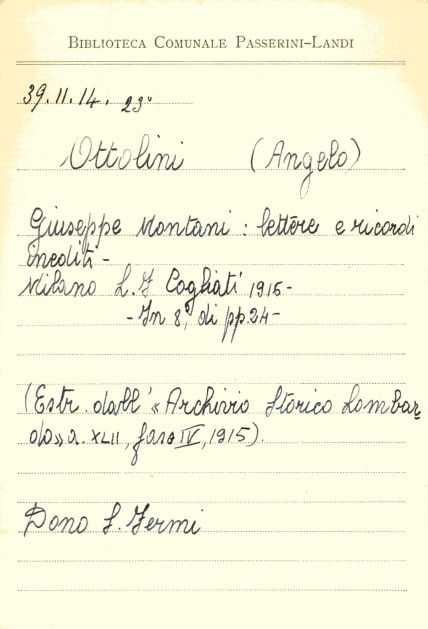 BIBLIOTECA COMUNALE PASSERINI-LANDI
39.II.14. 23°
Ottolini (Angelo)
Giuseppe Montani : lettere e ricordi
inediti -
Milano L. F Cogliati 1916 -
- In 8°, di pp 24 -
(Estr. dall' «Archivio Storico Lombar
do» a. XLII, fasc IV, 1915).
Dono S. Fermi